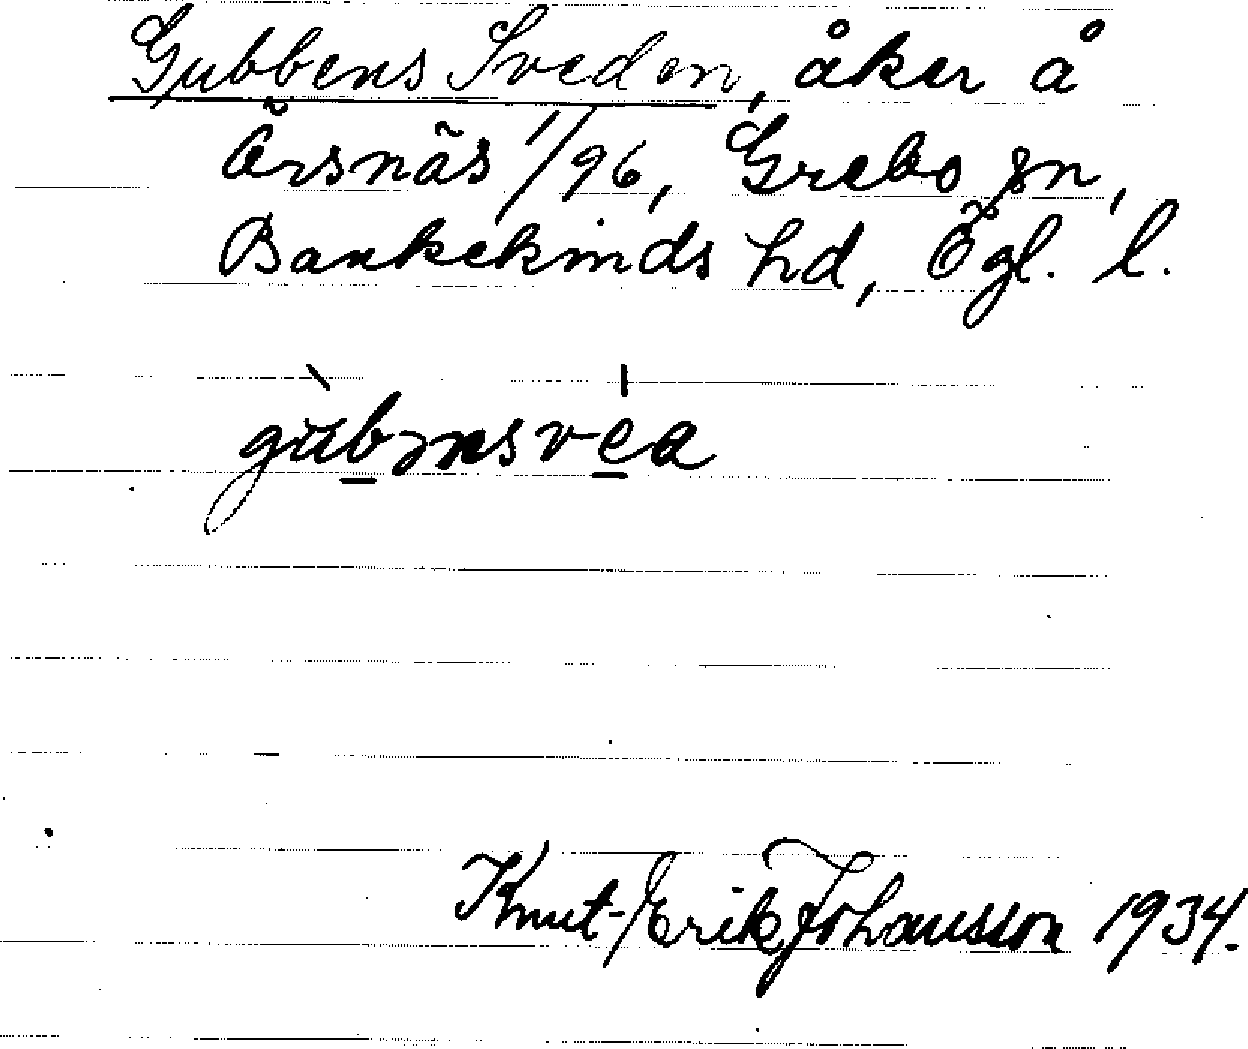 Gubbens Sveden, åker å
Örsnäs 1/96, Grebo sn,
Bankekinds hd, Ögl. l.
gu̇bənsvea
Knut-Erik Johansson 1934.